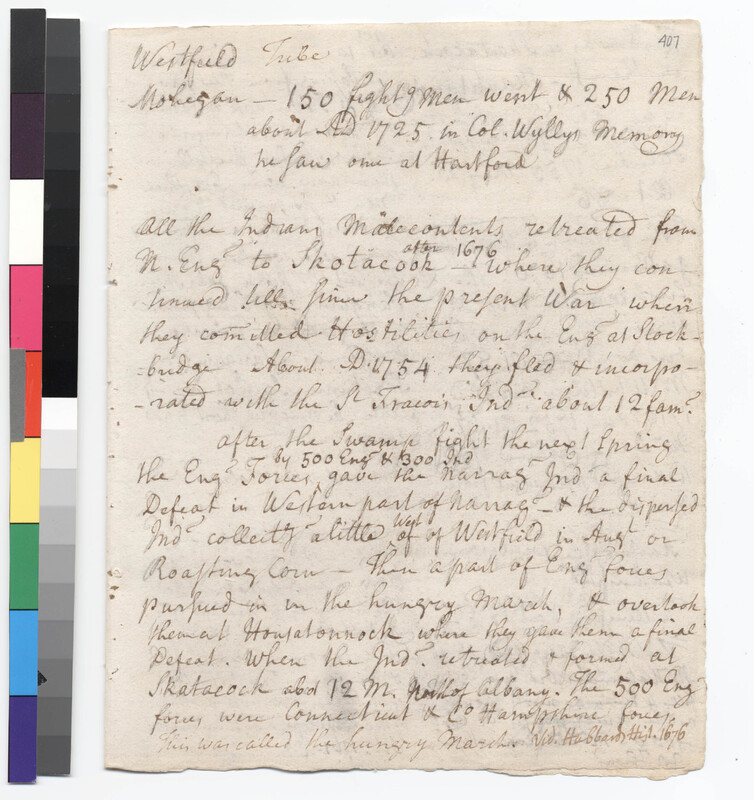 407
Westfield Tribe
Mohegan — 150 fightg Men went & 250 Men
about AD 1725. in Col. Wyllys Memory
he saw one at Hartford
All the Indian Malecontents retreated from
N. Engd to Skotacook after 1676 — where they con
tinued till since the present War, when
they comitted Hostilities on the Engd at Stock-
-bridge. About D. 1754 they fled & incorpo-
-rated with the St Fracois Inds about 12 fams.
after the Swamp fight the next Spring
the Engs Forces by 500 Engs & 300 Inds gave the Narragt Inds a final
Defeat in Western part of Narragt — & the dispersed
Inds collectg a little West of Westfield in Augt or
Roasting Corn — Then a part of Engs forces
pursued in in the hungry March, & overtook
them at Housatonnock where they gave them a final
Defeat. When the Inds retreated & formed at
Skatacock abot 12 M. of Albany. The 500 Engs
forces were Connecticut & Co Hampshire forces.
This was called the hungry March. Vid. Hubbards Hist. 1676